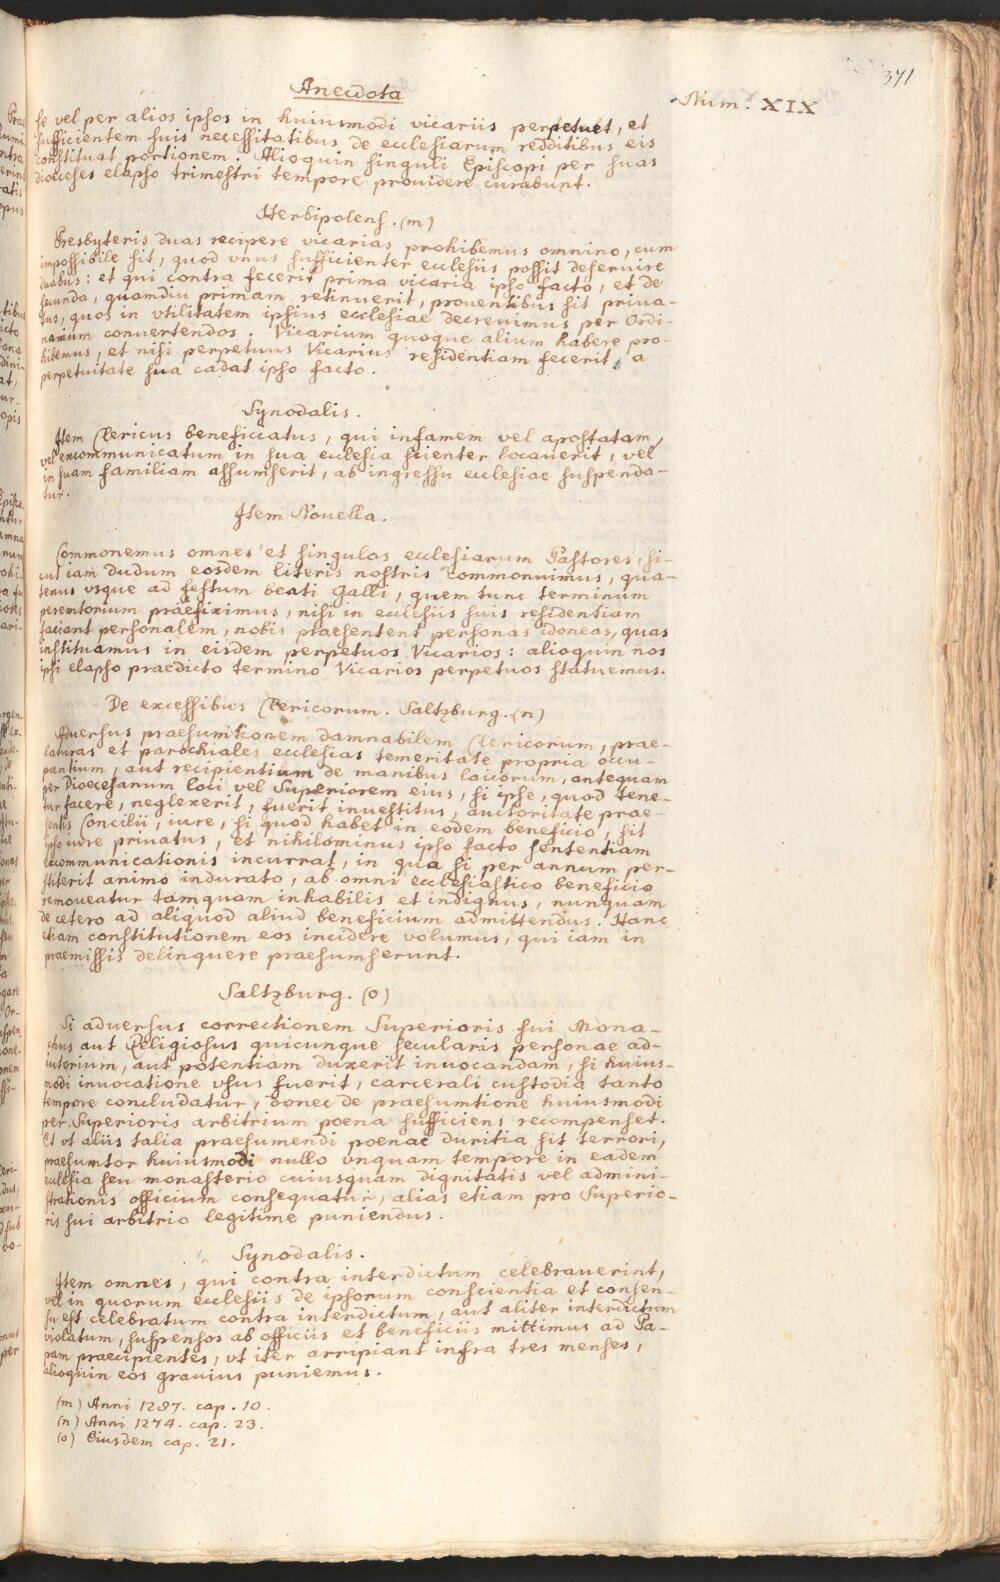 371
Anecdota
Num. XIX
se vel per alios ipsos in huiusmodi vicariis perpetuet, et
sufficientem suis necessitatibus de ecclesiarum redditibus eis
constituat portionem. Alioquin singuli Episcopi per suas
dioeceses elapso trimestri tempore providere curabunt.
Herbipolens. (m)
Presbyteris duas recipere vicarias prohibemus omnino, cum
impossibile sit, quod vnus sufficienter ecclesiis possit deservire
duabus: et qui contra fecerit prima vicaria ipso facto, et de
secunda, quamdiu primam retinuerit, prouentibus sit priua-
tus, quos in vtilitatem ipsius ecclesiae decreuimus per Ordi-
narium convertendos. Vicarium quoque alium habere pro-
hibemus, et nisi perpetuus Vicarius residentiam fecerit, a
perpetuitate sua cadat ipso facto.
Synodalis.
Item Clericus beneficiatus, qui infamem vel apostatam,
vel excommunicatum in sua ecclesia scienter locauerit, vel
in suam familiam assumserit, ab ingressu ecclesiae suspenda-
tur.
Item Nouella.
Commonemus omnes et singulos ecclesiarum Pastores, si-
cut iam dudum eosdem literis nostris commonuimus, qua-
tenus vsque ad festum beati Galli, quem tunc terminum
peremtorium praefiximus, nisi in ecclesiis suis residentiam
faciant personalem, nobis praesentent personas idoneas, quas
instituamus in eisdem perpetuos Vicarios: alioquin nos
ipsi elapso praedicto termino Vicarios perpetuos statuemus.
De excessibus Clericorum. Saltzburg. (n)
Aduersus praesumtionem damnabilem Clericorum, prae-
laturas et parochiales ecclesias temeritate propria occu-
pantium, aut recipientium de manibus laicorum, antequam
per Dioecesanum loci vel Superiorem eius, si ipse, quod tene-
tur facere, neglexerit, fuerit inuestitus, auctoritate prae-
sentis Concilii, iure, si quod habet in eodem beneficio, sit
ipso iure priuatus, et nihilominus ipso facto sententiam
excommunicationis incurrat, in qua si per annum per-
stiterit animo indurato, ab omni ecclesiastico beneficio
remoueatur tamquam inhabilis et indignus, nunquam
de cetero ad aliquod aliud beneficium admittendus. Hanc
etiam constitutionem eos incidere volumus, qui iam in
praemissis delinquere praesumserunt.
Saltzburg. (o)
Si aduersus correctionem Superioris sui Mona-
chus aut Religiosus quicunque secularis personae ad-
iutorium, aut potentiam duxerit invocandam, si huius-
modi invocatione vsus fuerit, carcerali custodia tanto
tempore concludatur, donec de praesumtione huiusmodi
per Superioris arbitrium poena sufficiens recompenset.
Et vt aliis talia praesumendi poenae duritia sit terrori,
praesumtor huiusmodi nullo vnquam tempore in eadem
ecclesia seu monasterio cuiusquam dignitatis vel admini-
strationis officium consequatur, alias etiam pro Superio-
ris sui arbitrio legitime puniendus.
Synodalis.
Item omnes, qui contra interdictum celebrauerint,
vel in quorum ecclesiis de ipsorum conscientia et consen-
su est celebratum contra interdictum, aut aliter interdictum
violatum, suspensos ab officiis et beneficiis mittimus ad Pa-
pam praecipientes, vt iter arripiant infra tres menses,
alioquin eos grauius puniemus.
(m) Anni 1287. cap. 10.
(n) Anni 1274. cap. 23.
(o) Eiusdem cap. 21.